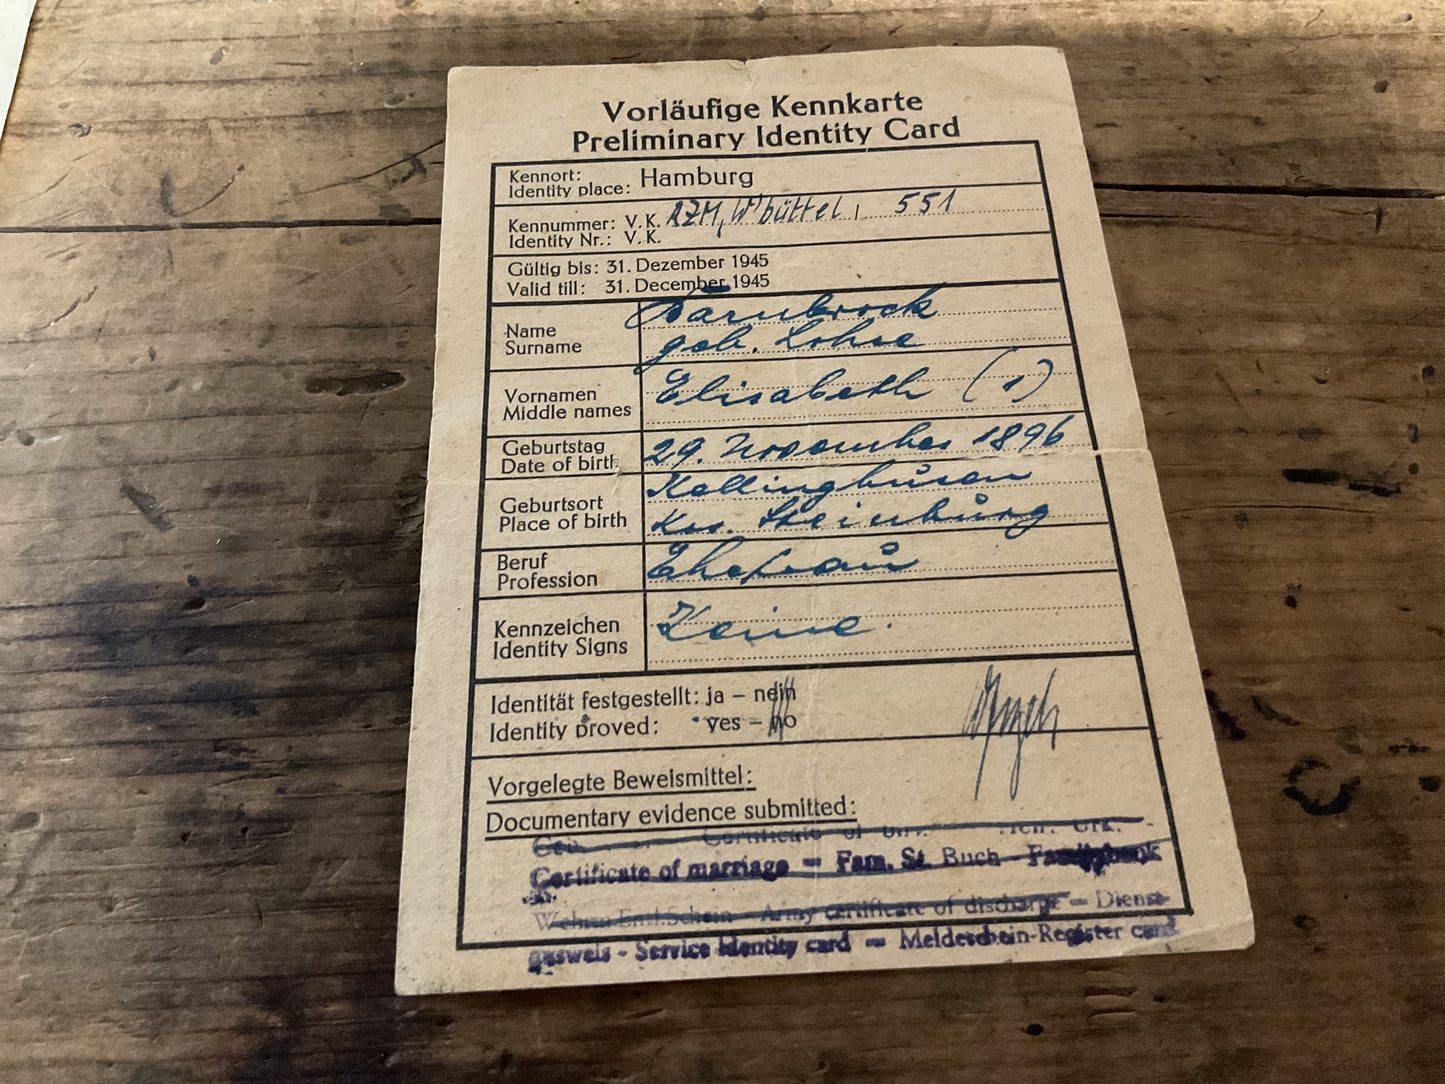 Vorläufige Kennkarte
Preliminary Identity Card
Kennort:
Identity place: Hamburg
Kennummer: V. K. RZM, W'büttel, 551
Identity Nr.: V. K.
Gültig bis: 31. Dezember 1945
Valid till: 31. December 1945
Name
Surname
geb. Lohse
Vornamen
Middle names
Elisabeth (1)
Geburtstag
Date of birth
29. November 1896
Geburtsort
Place of birth
Kellinghusen
Krs. Steinburg
Beruf
Profession
Ehefrau
Kennzeichen
Identity Signs
Keine.
Identität festgestellt: ja – nein
Identity proved: yes – no
Vorgelegte Beweismittel:
Documentary evidence submitted:
Certificate of
Certificate of marriage – Fam. St. Buch – Familybook
Wehrm Entl.Schein – Army certificate of discharge – Dienst-
ausweis - Service identity card – Meldeschein-Register card